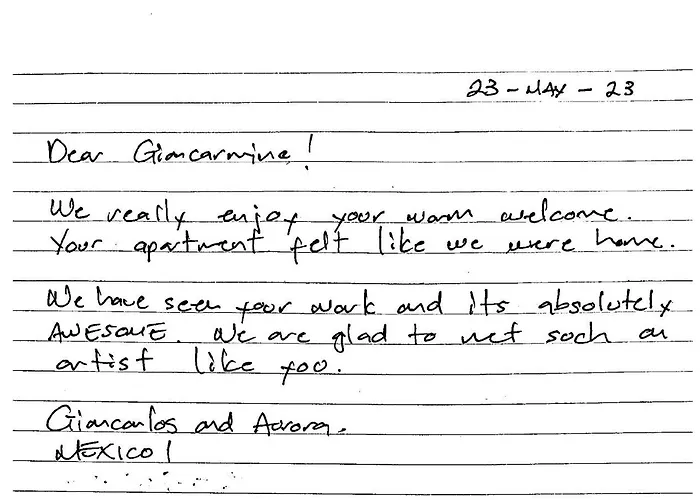 23-MAY-23
Dear Giancarmine!
We really enjoy your warm welcome.
Your apartment felt like we were home.
We have seen your work and its absolutely
AWESOME. We are glad to met such an
artist like you.
Giancarlos and Aurora.
MEXICO!